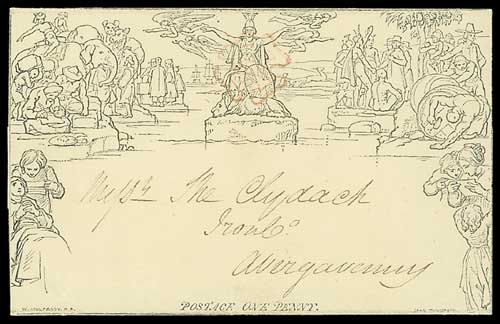 Messrs The Clydach
Iron Co
Abergavenny
W. MULREADY, R.A.
POSTAGE ONE PENNY.
JOHN THOMPSON